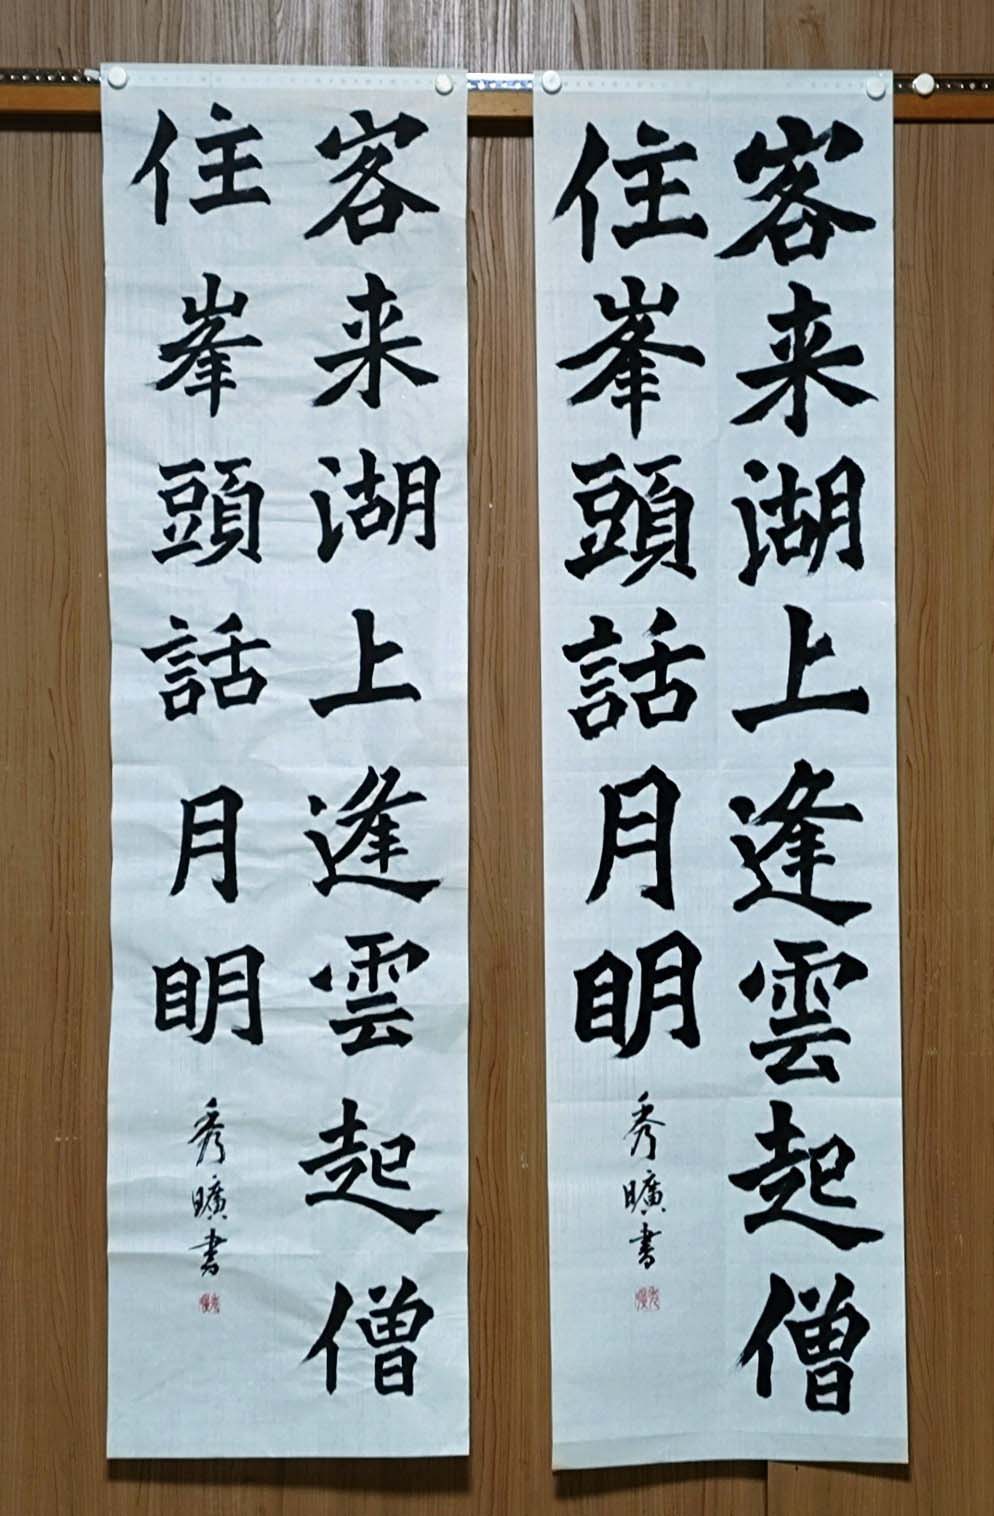 客来湖上逢雲起僧
住峯頭話月明
秀曠書
客来湖上逢雲起僧
住峯頭話月明
秀曠書